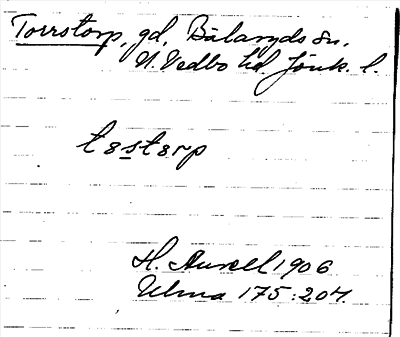 Torrstorp, gd, Bälaryds sn,
N. Vedbo hd. Jönk. l.
tɞstɞrp
H. Aurell 1906
Ulma 175:204.